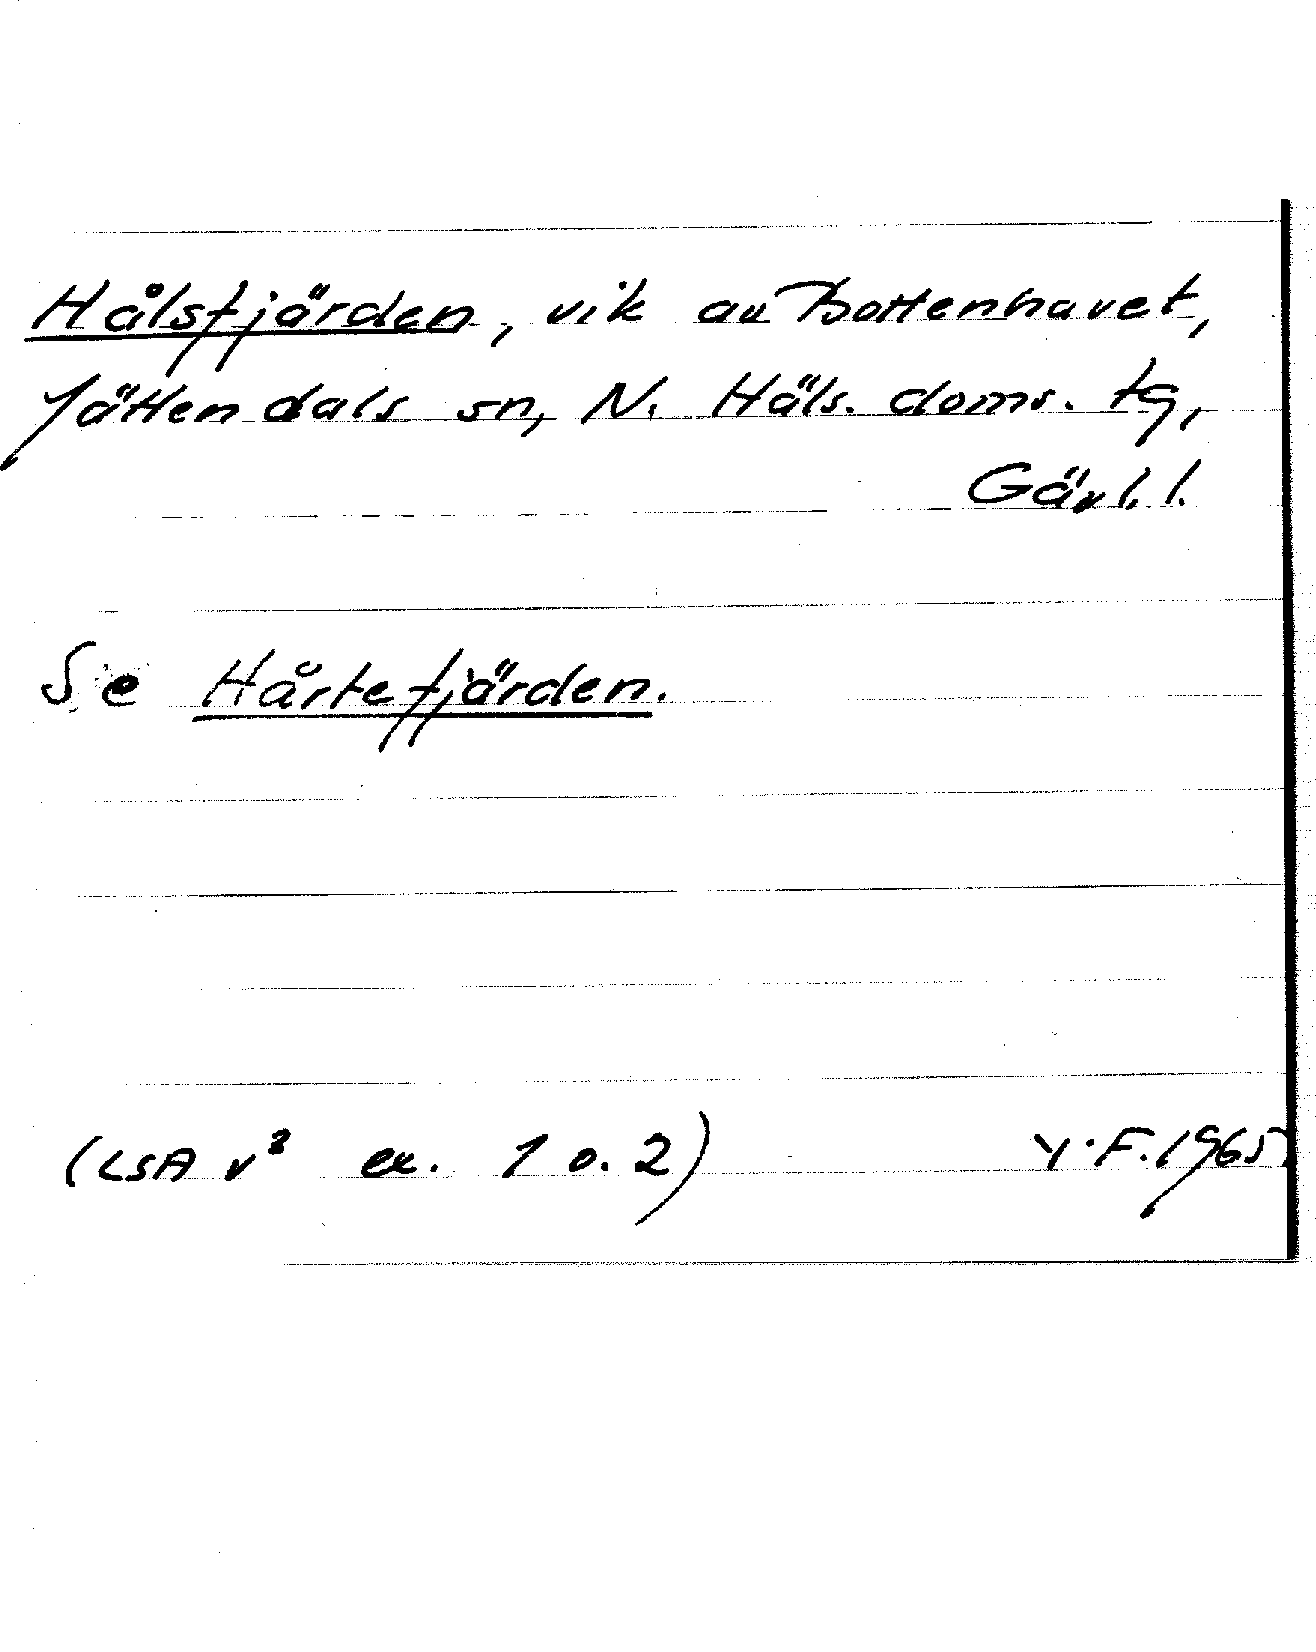 Hålsfjärden, vik av Bottenhavet,
Jättendals sn, N. Häls. doms. tg,
Gävl. l.
Se Hårtefjärden.
(LSA v³ ex. 1 o. 2) Y.F. 1965